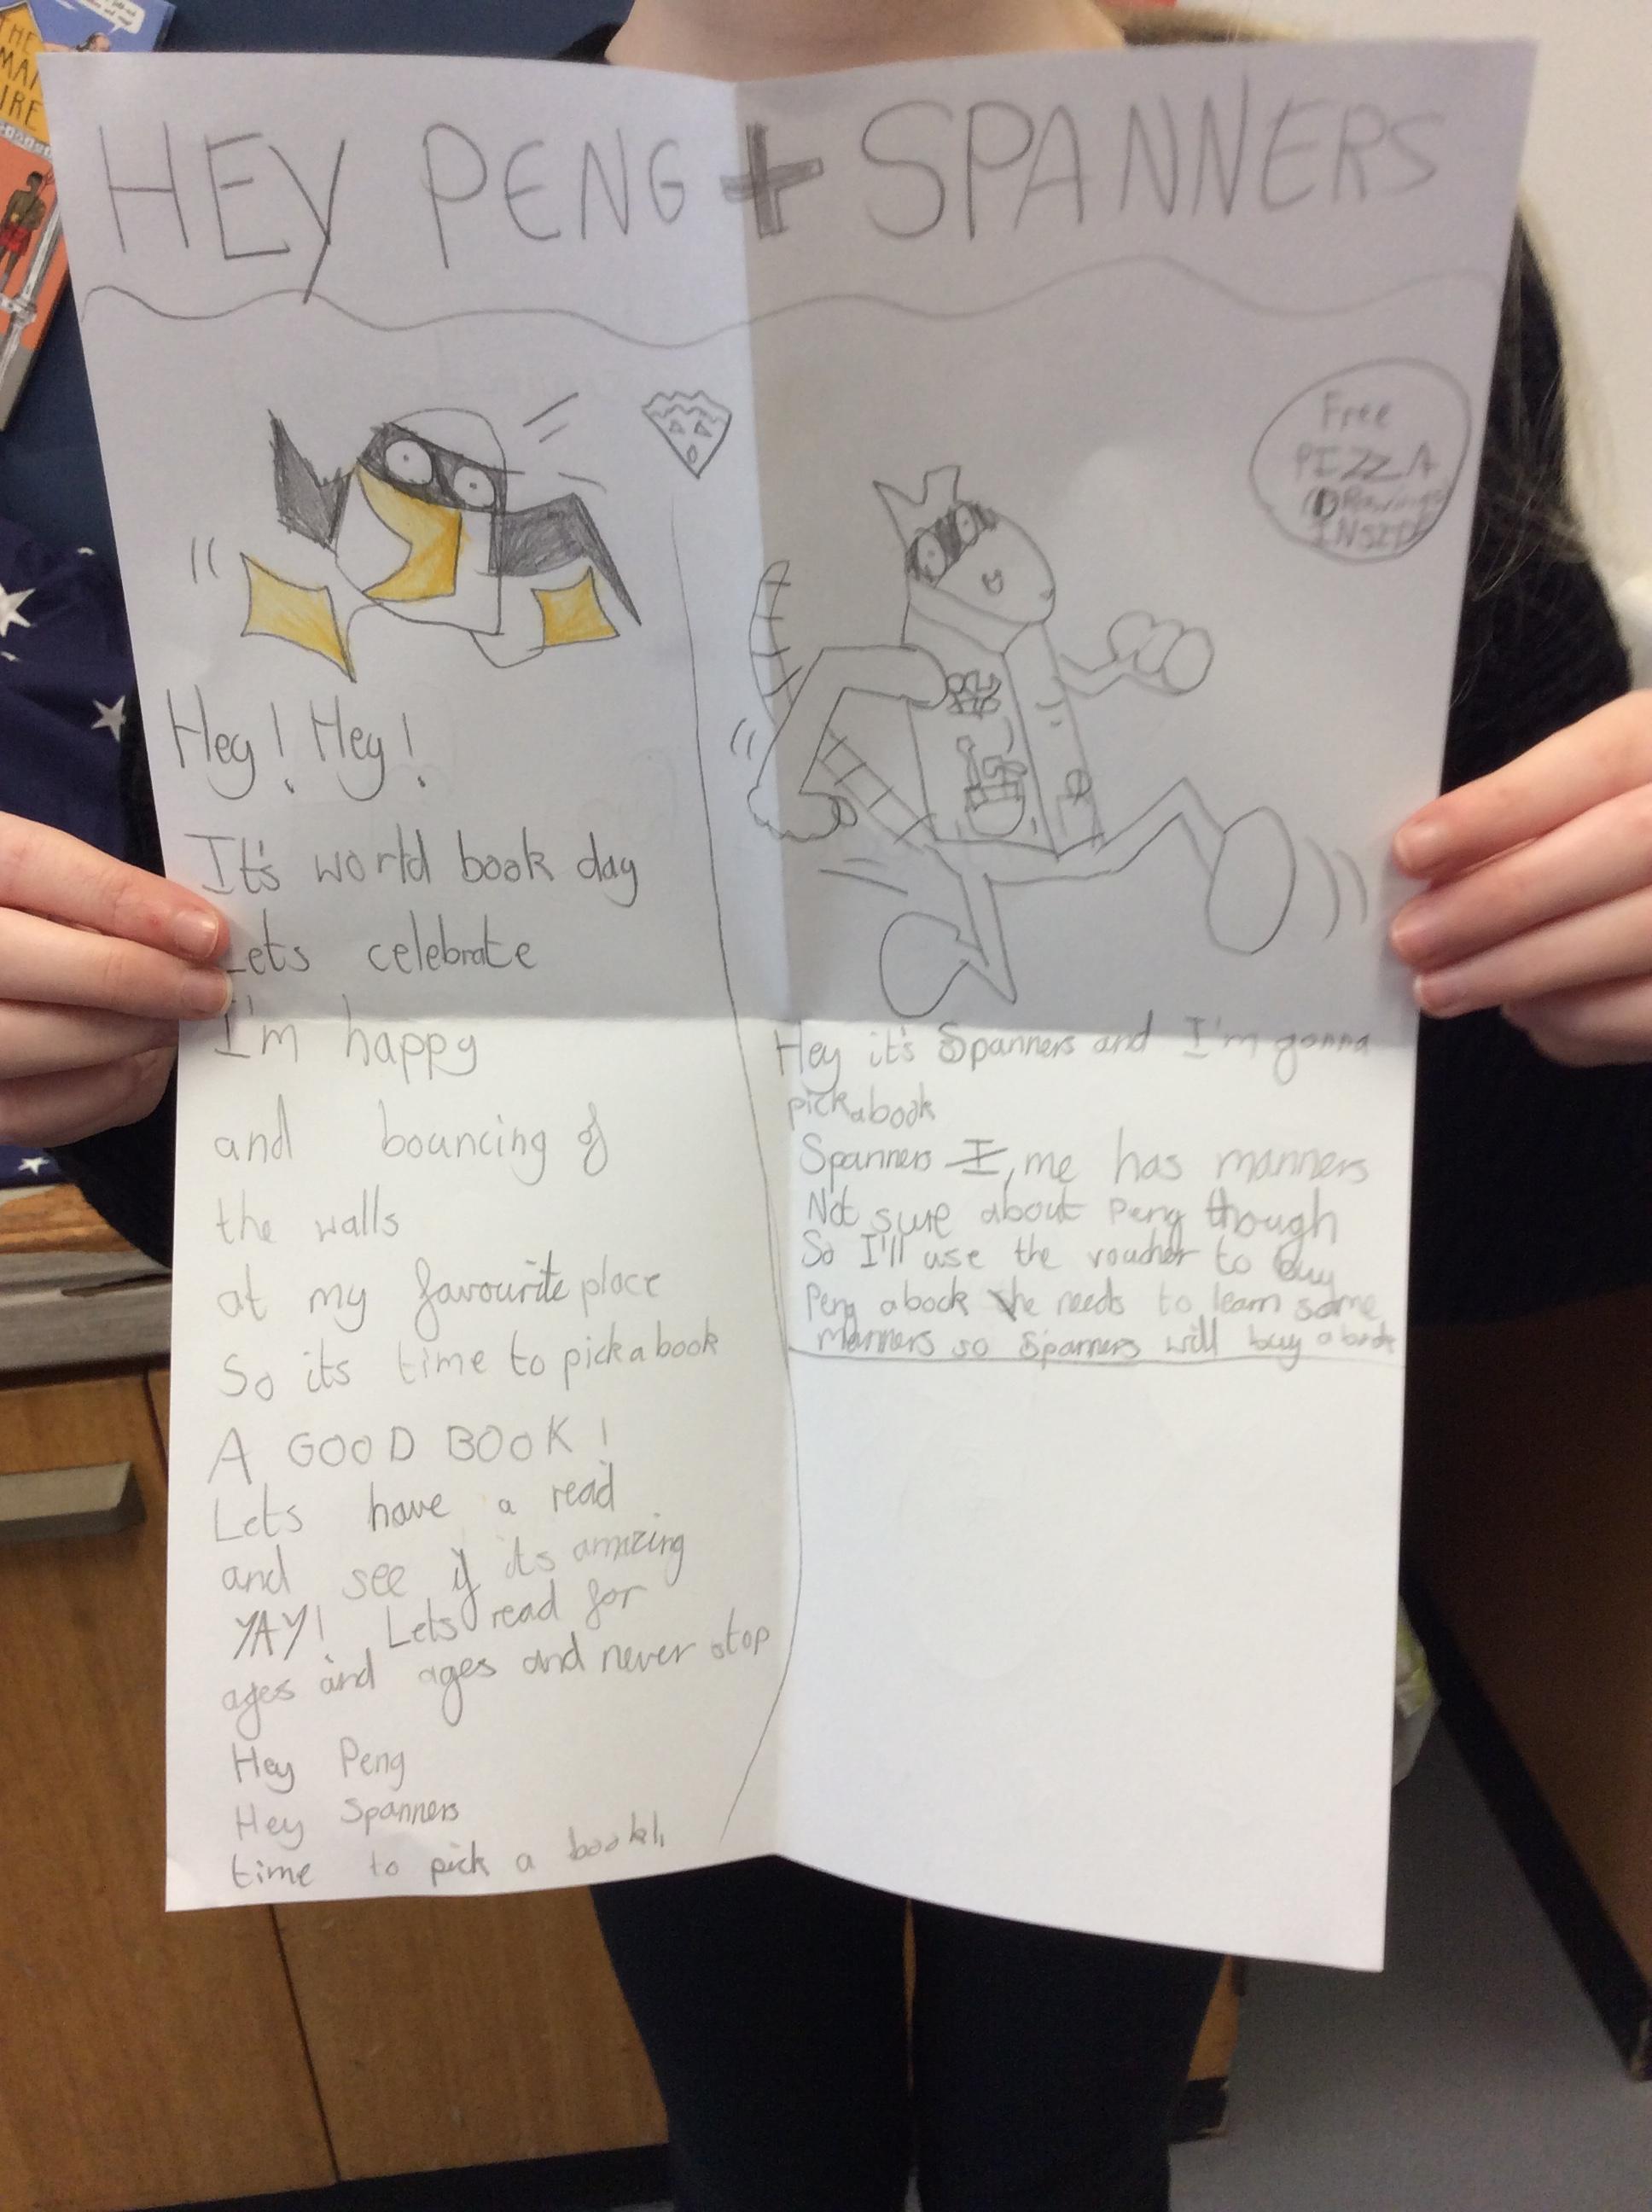 HEY PENG + SPANNERS
Free
PIZZA
(Drawings)
INSIDE
Hey! Hey!
It's world book day
Lets celebrate
I'm happy
and bouncing of
the walls
at my favourite place
So its time to pick a book
A GOOD BOOK!
Lets have a read
and see if its amazing
YAY! Lets read for
ages and ages and never stop
Hey Peng
Hey Spanners
time to pick a book!
Hey it's Spanners and I'm gonna
pick a book
Spanners I, me has manners
Not sure about Peng though
So I'll use the voucher to buy
Peng a book he needs to learn some
manners so Spanners will buy a book
THE